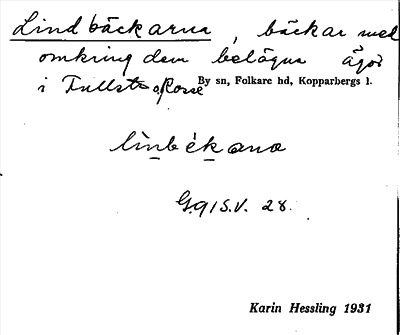 Lindbäckarna, bäckar med
omkring dem belägna ägor
i Tullsta o Rosse By sn, Folkare hd, Kopparbergs l.
lìnbékana
G. 9 1 S.V. 28.
Karin Hessling 1931